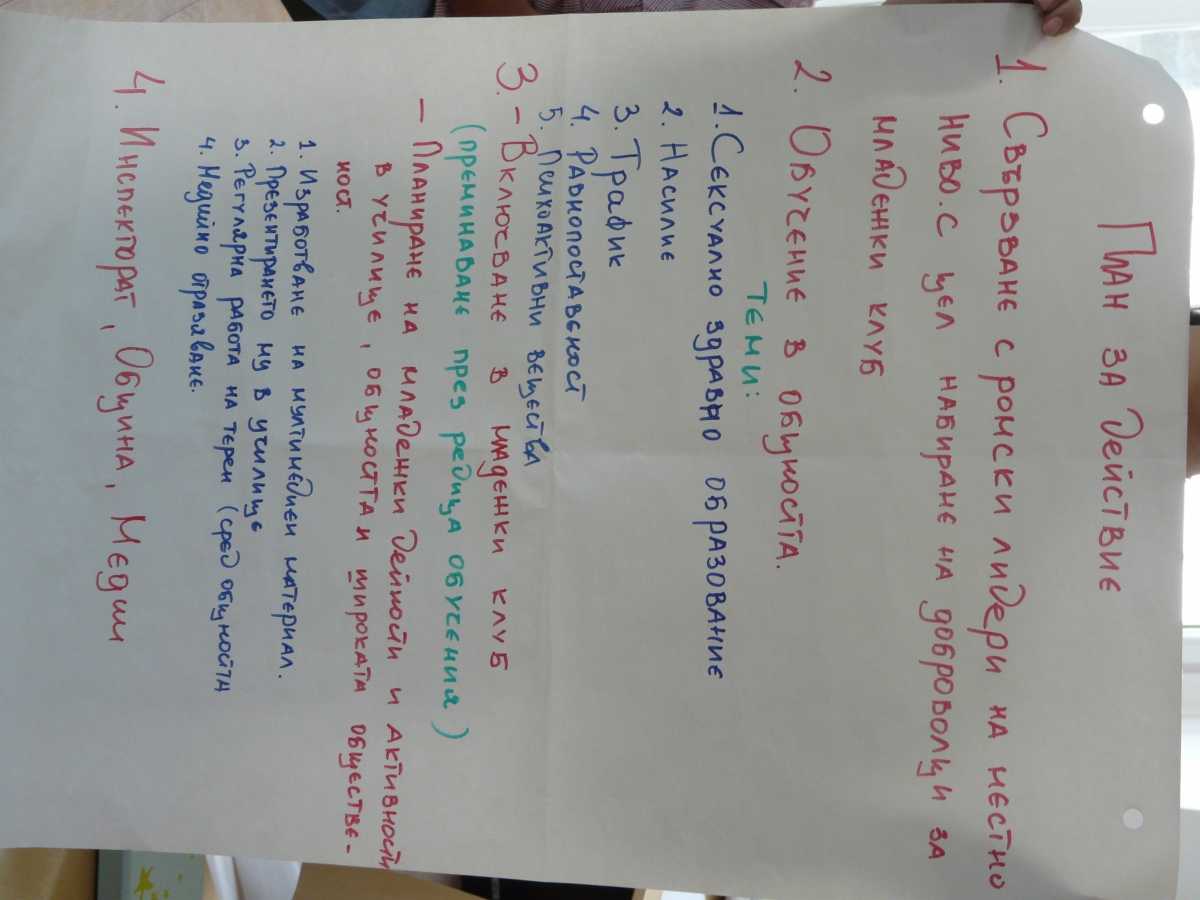 ПЛАН ЗА ДЕЙСТВИЕ
1. СВЪРЗВАНЕ С РОМСКИ ЛИДЕРИ НА МЕСТНО
НИВО. С ЦЕЛ НАБИРАНЕ НА ДОБРОВОЛЦИ ЗА
МЛАДЕЖКИ КЛУБ
2. ОБУЧЕНИЕ В ОБЩНОСТА.
ТЕМИ:
1. СЕКСУАЛНО ЗДРАВНО ОБРАЗОВАНИЕ
2. НАСИЛИЕ
3. ТРАФИК
4. РАВНОПОСТАВЕНОСТ
5. ПСИХОАКТИВНИ ВЕЩЕСТВА
3. - ВКЛЮЧВАНЕ В МЛАДЕЖКИ КЛУБ
(ПРЕМИНАВАНЕ ПРЕЗ РЕДИЦА ОБУЧЕНИЯ)
- ПЛАНИРАНЕ НА МЛАДЕЖКИ ДЕЙНОСТИ И АКТИВНОСТИ
В УЧИЛИЩЕ, ОБЩНОСТТА И ШИРОКАТА ОБЩЕСТВЕ-
НОСТ.
1. ИЗРАБОТВАНЕ НА МУЛТИМЕДИЕН МАТЕРИАЛ.
2. ПРЕЗЕНТИРАНЕТО МУ В УЧИЛИЩЕ
3. РЕГУЛЯРНА РАБОТА НА ТЕРЕН (СРЕД ОБЩНОСТТА
4. МЕДИЙНО ОТРАЗЯВАНЕ.
4. ИНСПЕКТОРАТ, ОБЩИНА, МЕДИИ